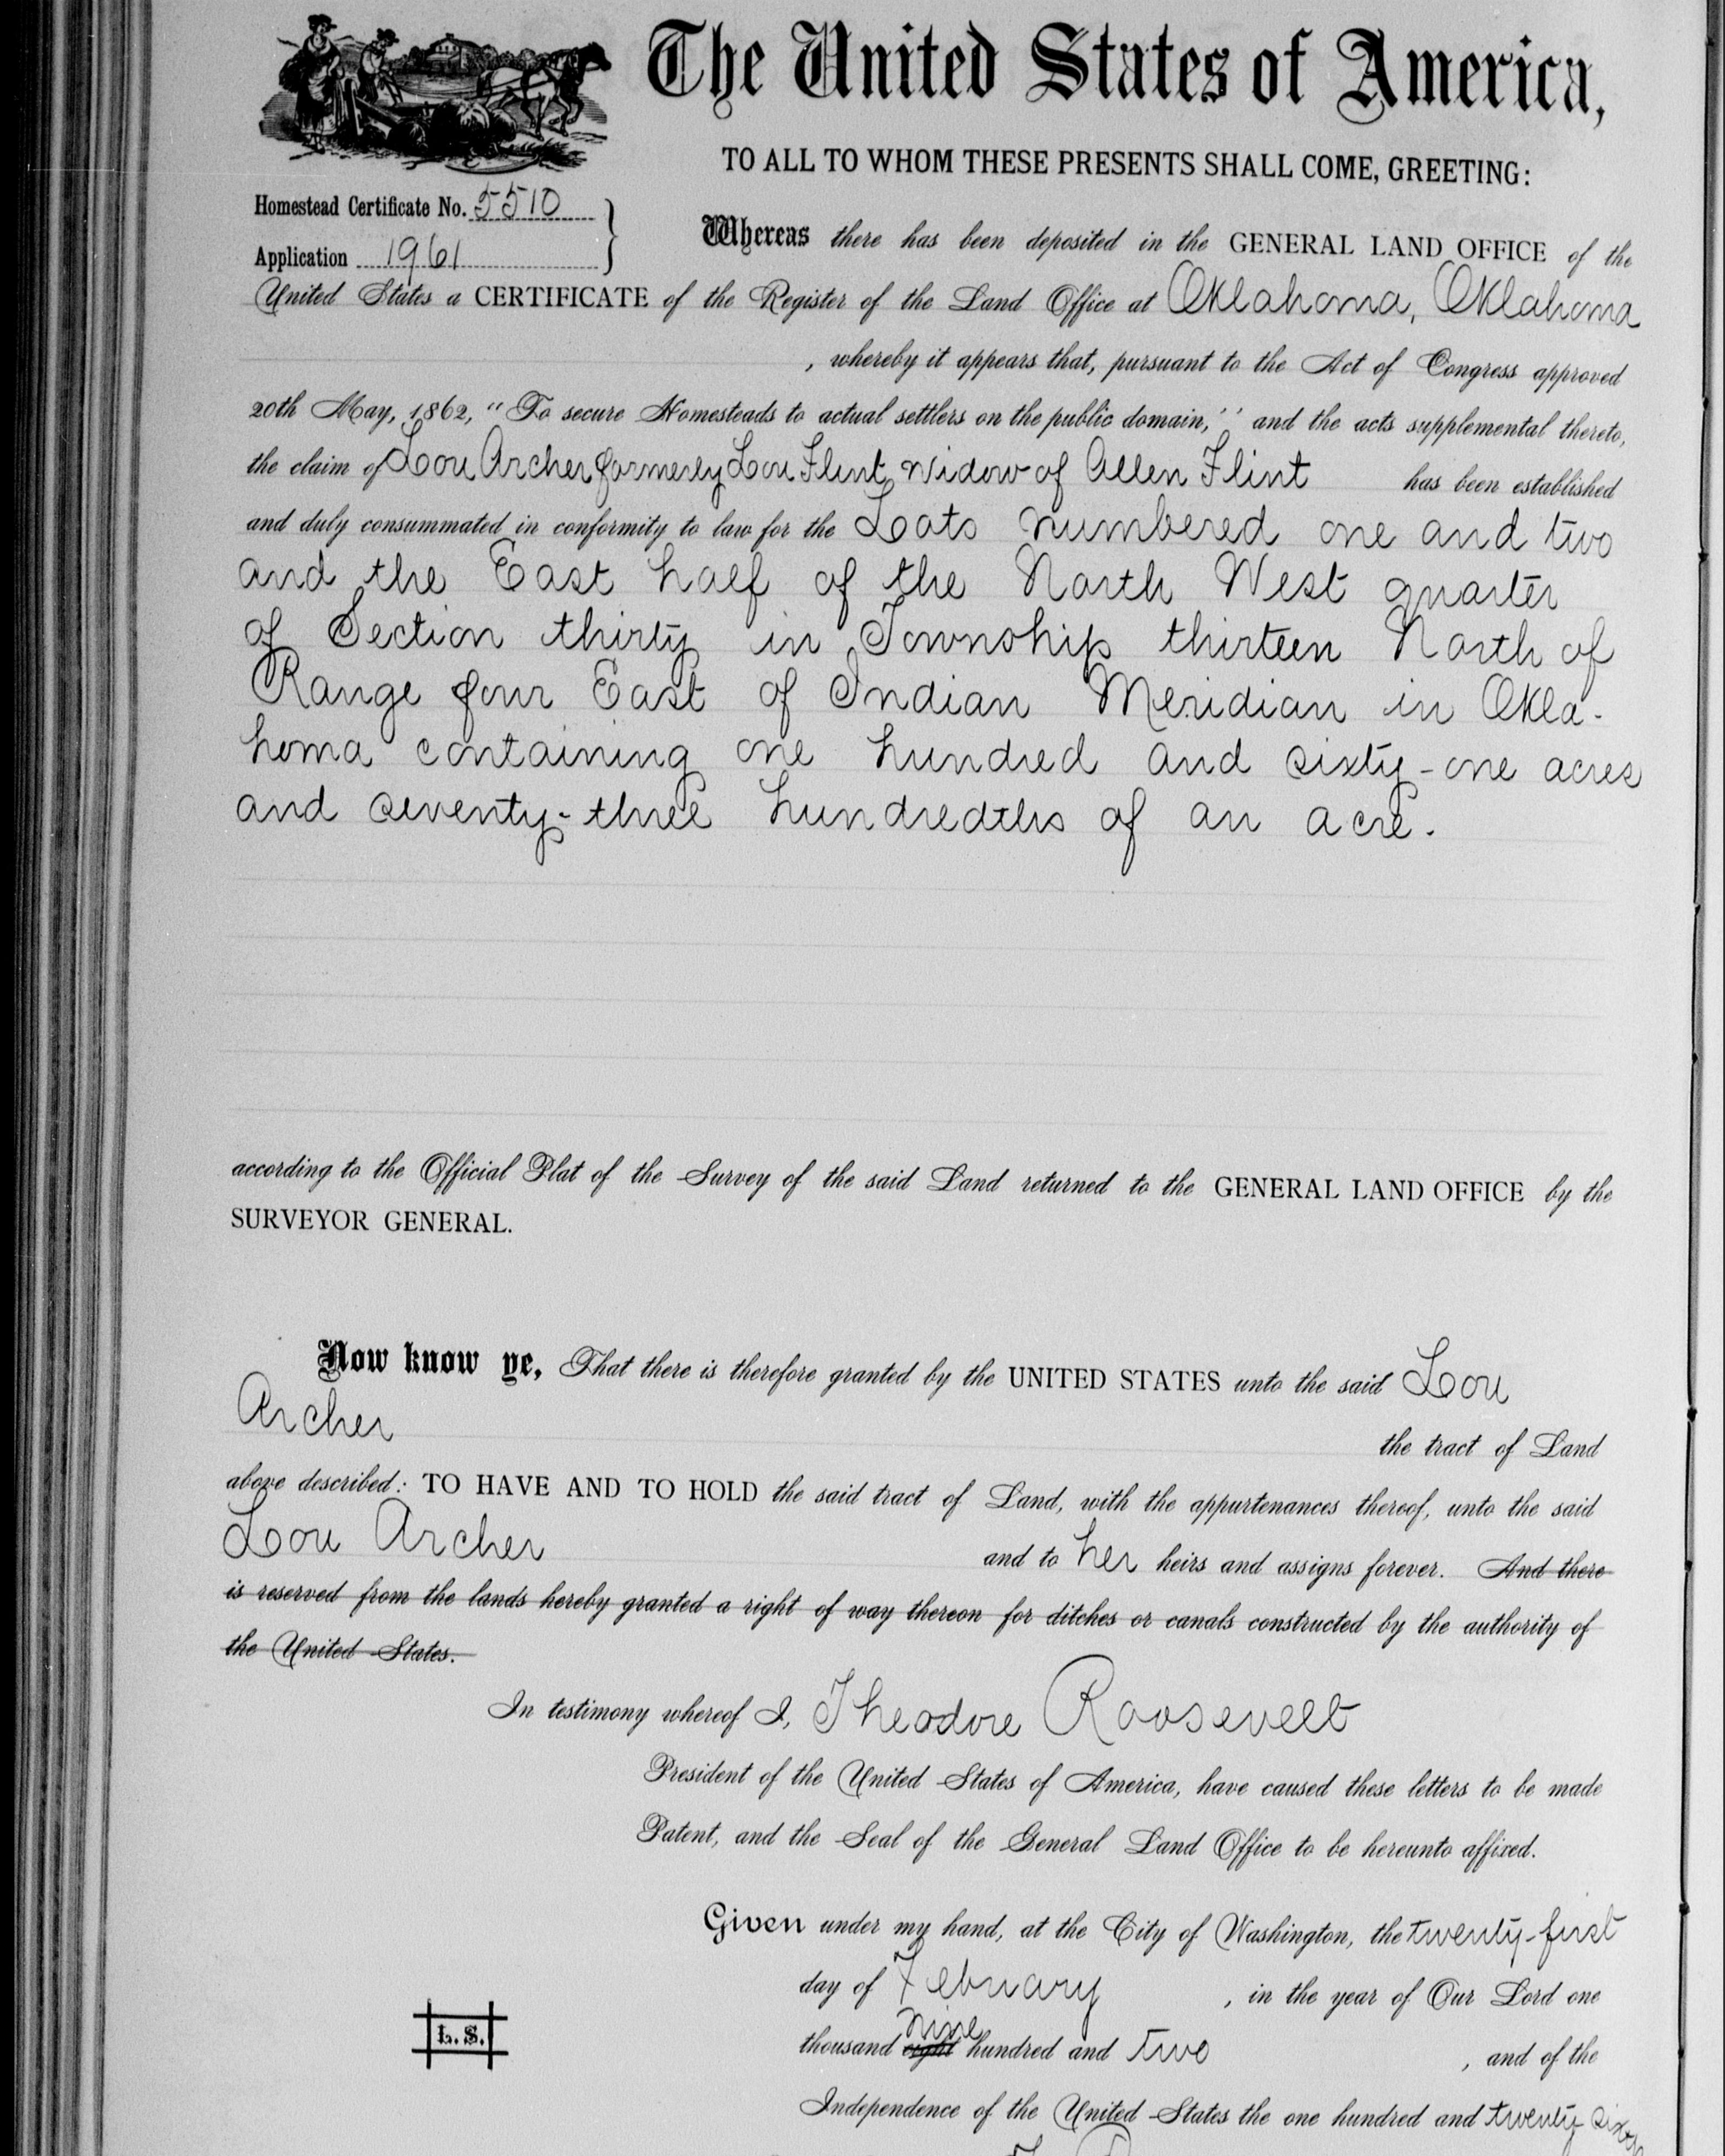 The United States of America,
TO ALL TO WHOM THESE PRESENTS SHALL COME, GREETING:
Homestead Certificate No. 5510
Application 1961
Whereas there has been deposited in the GENERAL LAND OFFICE of the
United States a CERTIFICATE of the Register of the Land Office at Oklahoma, Oklahoma
, whereby it appears that, pursuant to the Act of Congress approved
20th May, 1862, "To secure Homesteads to actual settlers on the public domain," and the acts supplemental thereto,
the claim of Lou Archer formerly Lou Flint, widow of Allen Flint has been established
and duly consummated in conformity to law for the Lots numbered one and two
and the East half of the North West quarter
of Section thirty in Township thirteen North of
Range four East of Indian Meridian in Okla-
homa containing one hundred and sixty-one acres
and seventy-three hundredths of an acre.
according to the Official Plat of the Survey of the said Land returned to the GENERAL LAND OFFICE by the
SURVEYOR GENERAL.
Now know ye, That there is therefore granted by the UNITED STATES unto the said Lou
Archer
the tract of Land
above described: TO HAVE AND TO HOLD the said tract of Land, with the appurtenances thereof, unto the said
Lou Archer and to her heirs and assigns forever. And there
is reserved from the lands hereby granted a right of way thereon for ditches or canals constructed by the authority of
the United States.
In testimony whereof I, Theodore Roosevelt
President of the United States of America, have caused these letters to be made
Patent, and the Seal of the General Land Office to be hereunto affixed.
Given under my hand, at the City of Washington, the twenty-first
day of February , in the year of Our Lord one
nine
thousand eight hundred and two , and of the
L. S.
Independence of the United States the one hundred and twenty-sixth